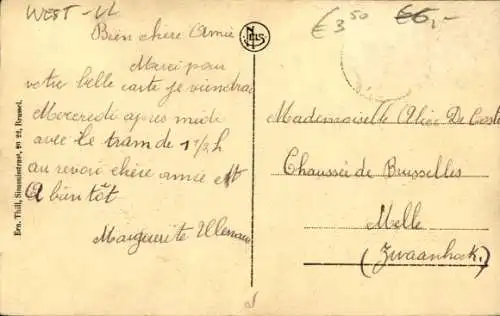 WEST-VL
€3,50 €6,-
Bien chère Amie
Merci pour
votre belle carte je viendrai
Mercredi après midi
avec le tram de 1 1/2 h
au revoir chère amie et
A bientôt
Marguerite
NELS
Ern. Thill, Brussel.
Mademoiselle Alice De Coste
Chaussée de Brusselles
Melle
(Zwaanhoek.)